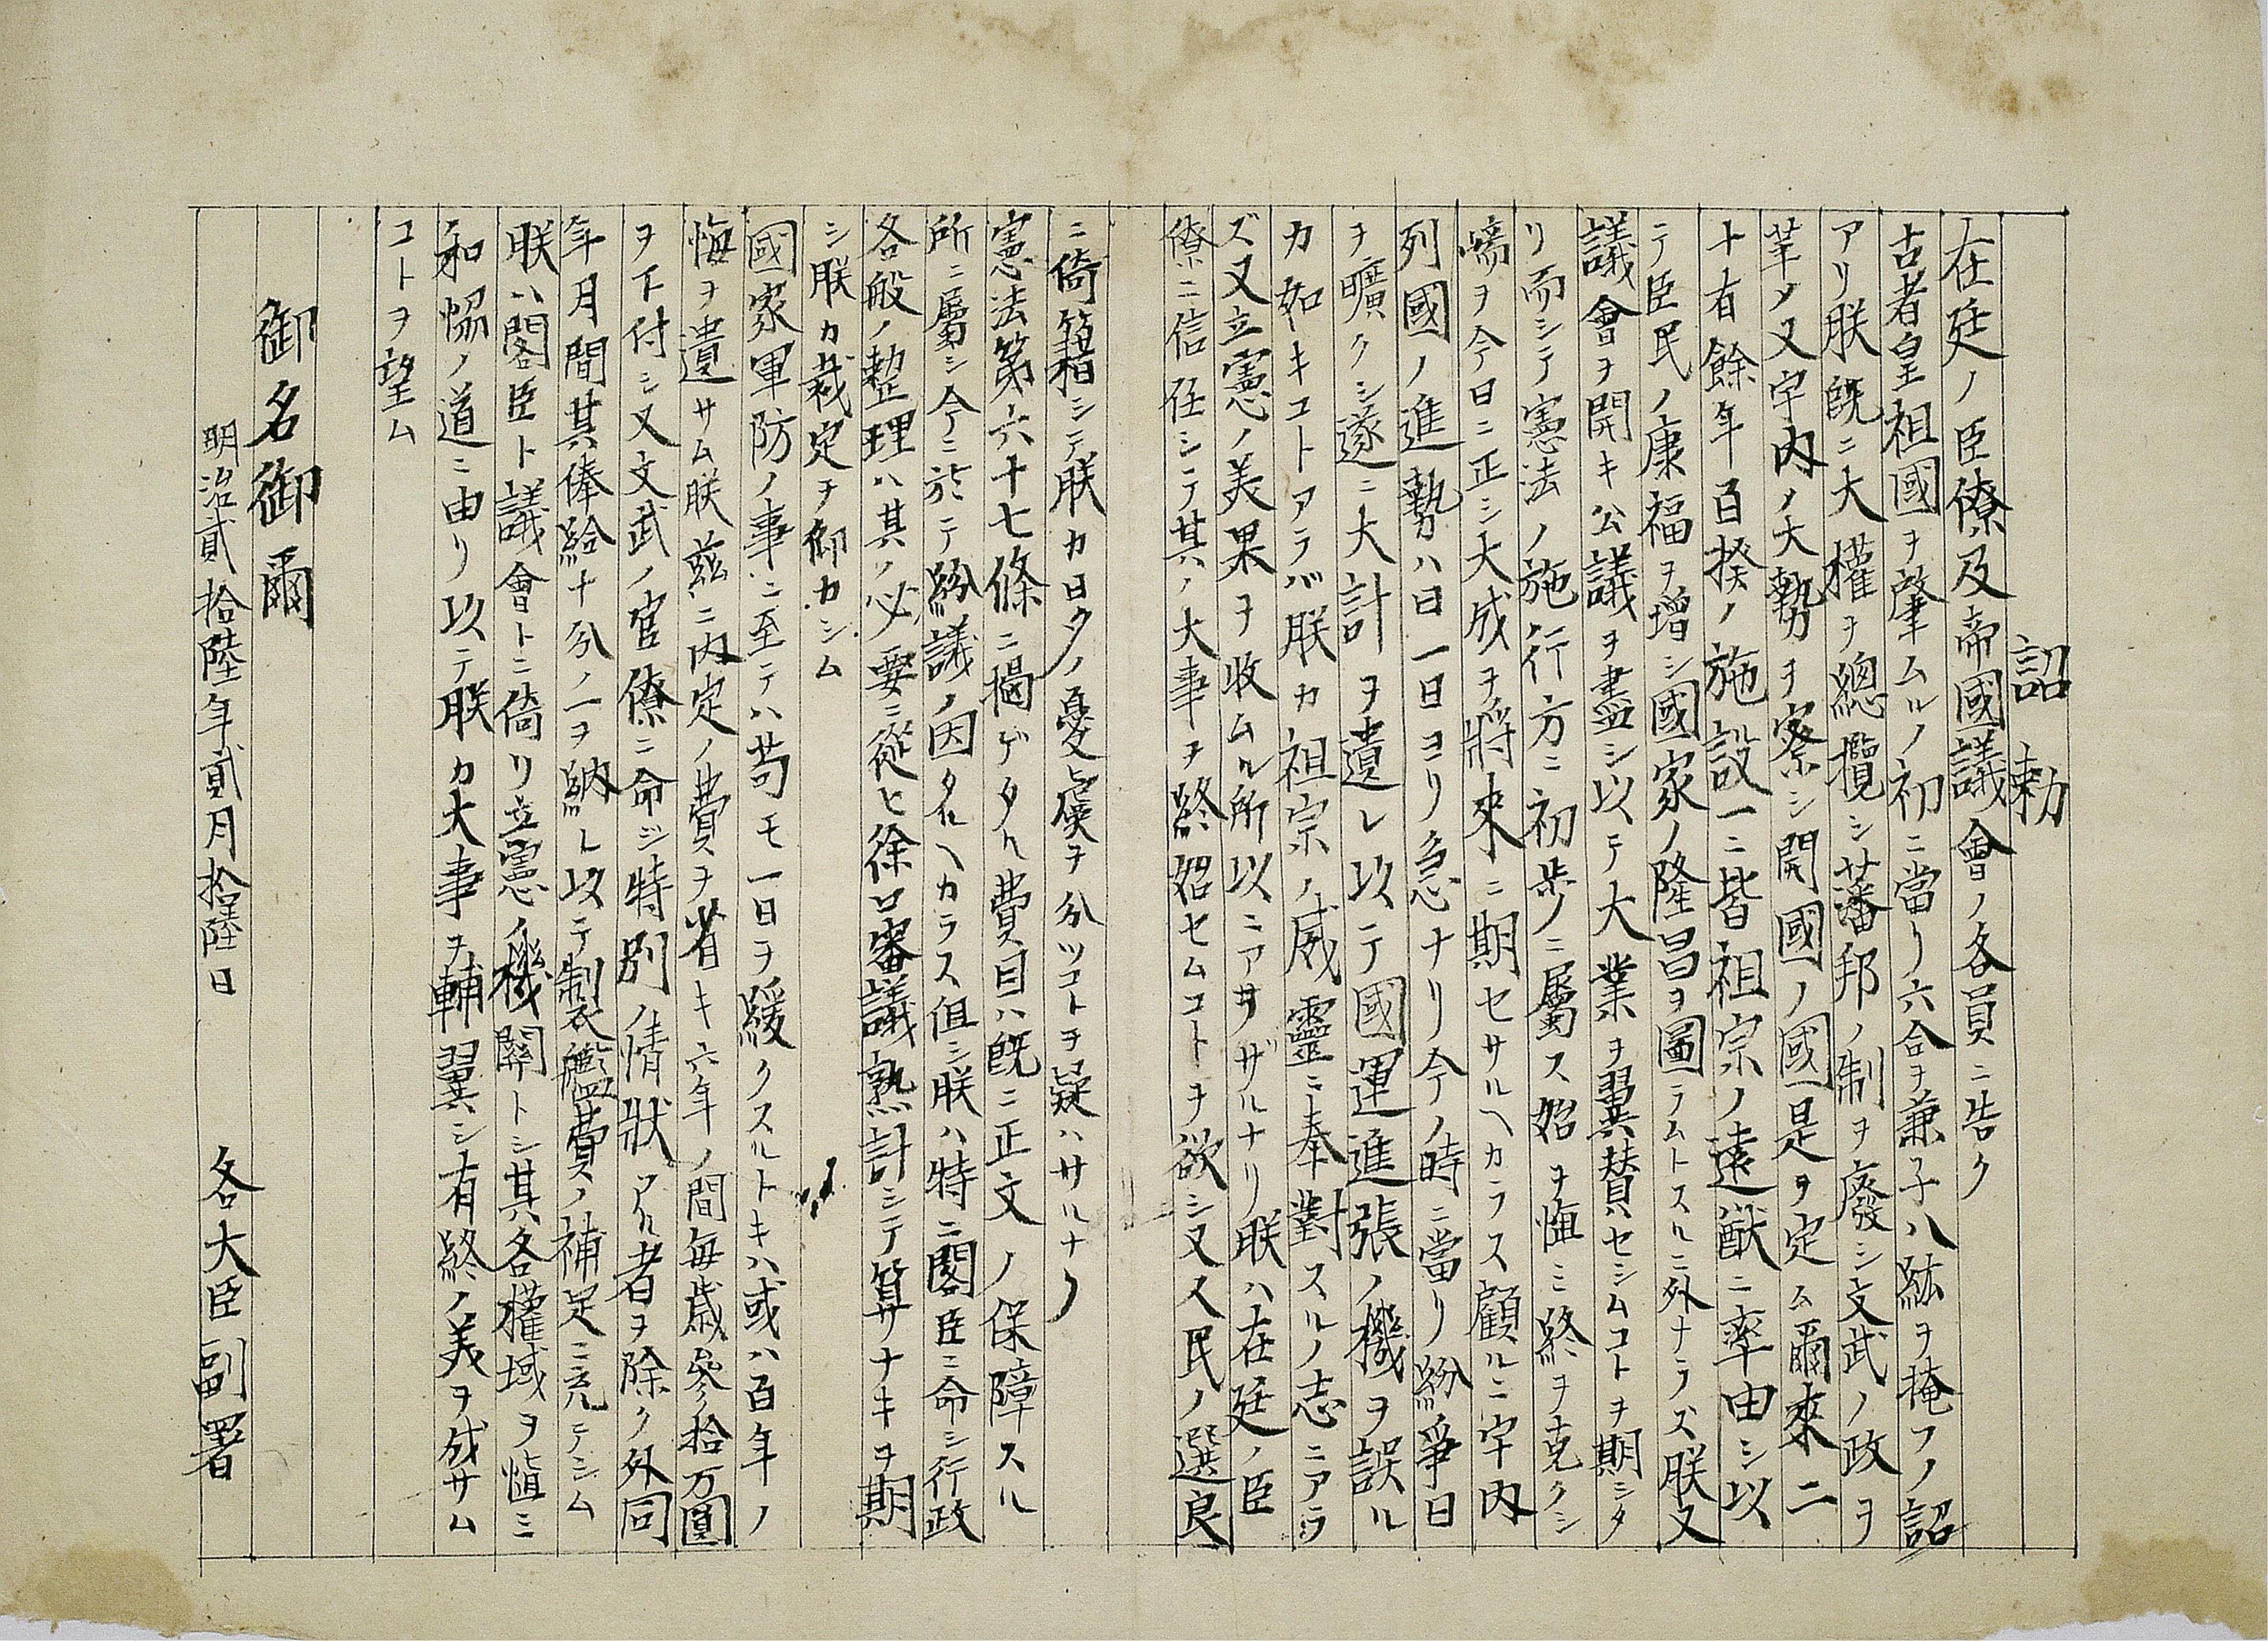 詔勅
在廷ノ臣僚及帝國議會ノ各員ニ告ク
古者皇祖國ヲ肇ムルノ初ニ當リ六合ヲ兼子八紘ヲ掩フノ詔
アリ朕既ニ大權ヲ總攬シ藩邦ノ制ヲ廢シ文武ノ政ヲ
革メ又宇内ノ大勢ヲ察シ開國ノ國是ヲ定ム爾來二
十有餘年百揆ノ施設一ニ皆祖宗ノ遠猷ニ率由シ以
テ臣民ノ康福ヲ增シ國家ノ隆昌ヲ圖ラムトスルニ外ナラズ朕又
議會ヲ開キ公議ヲ盡シ以テ大業ヲ翼賛セシムコトヲ期シタ
リ而シテ憲法ノ施行方ニ初歩ノニ屬ス始ヲ愼ミ終ヲ克クシ
端ヲ今日ニ正シ大成ヲ將來ニ期セサルヘカラス顧ルニ宇内
列國ノ進勢ハ日一日ヨリ急ナリ今ノ時ニ當リ紛爭日
ヲ曠クシ遂ニ大計ヲ遺レ以テ國運進張ノ機ヲ誤ル
カ如キコトアラバ朕カ祖宗ノ威靈ニ奉對スルノ志ニアラ
ズ又立憲ノ美果ヲ收ムル所以ニアラザルナリ朕ハ在廷ノ臣
僚ニ信任シテ其ノ大事ヲ終始セムコトヲ欲シ又人民ノ選良
ニ倚籍シテ朕カ日夕ノ憂虞ヲ分ツコトヲ疑ハサルナリ
憲法第六十七條ニ揭ゲタル費目ハ既ニ正文ノ保障スル
所ニ屬シ今ニ於テ紛議ノ因タルヘカラス但シ朕ハ特ニ閣臣ニ命シ行政
各般ノ整理ハ其ノ必要ニ從ヒ徐ロ審議熟計シテ算サナキヲ期
シ朕カ裁定ヲ仰カシム
國家軍防ノ事ニ至テハ苟モ一日ヲ緩クスルトキハ或ハ百年ノ
悔ヲ遺サム朕茲ニ内定ノ費ヲ省キ六年ノ間每歳參拾万圓
ヲ下付シ又文武ノ官僚ニ命ジ特別ノ情狀アル者ヲ除ク外同
年月間其俸給十分ノ一ヲ納レ以テ製艦費ノ補足ニ充テシム
朕ハ閣臣ト議會トニ倚リ立憲ノ機關トシ其各權域ヲ愼ミ
和恊ノ道ニ由リ以テ朕カ大事ヲ輔翼シ有終ノ美ヲ成サム
コトヲ望ム
御名御爾
明治貳拾陸年貳月拾陸日 各大臣副署